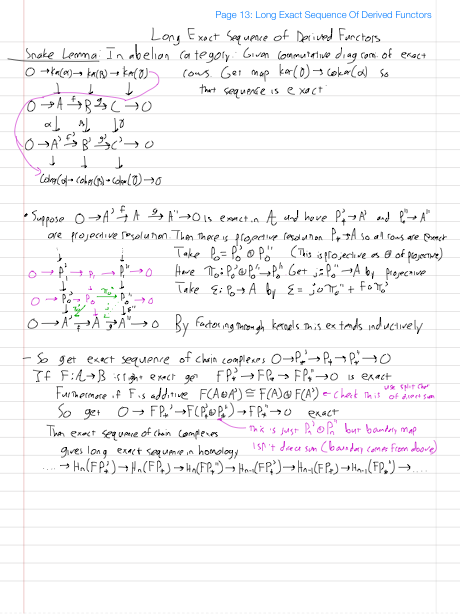 Page 13: Long Exact Sequence Of Derived Functors
Long Exact Sequence of Derived Functors
Snake Lemma: In abelian category: Given commutative diagram of exact
0 → ker(α) → ker(β) → ker(γ) rows. Get map ker(γ) → coker(α) so
that sequence is exact
0 → A →f B →g C → 0
α↓ β↓ ↓γ
0 → A' →f' B' →g' C' → 0
coker(α) → coker(β) → coker(γ) → 0
• Suppose 0 → A' →f A →g A'' → 0 is exact in A and have P'* → A' and P''* → A''
are projective resolution. Then there is projective resolution P* → A so all rows are exact
Take P₀ = P₀' ⊕ P₀'' (This is projective as ⊕ of projective)
0 → P₁' → P₁ → P₁'' → 0 Have π₀: P₀' ⊕ P₀'' → P₀' Get j: P₀'' → A by projective
0 → P₀' → P₀ → P₀'' → 0 Take ε: P₀ → A by ε = j∘π₀'' + f∘π₀'
0 → A' →f A →g A'' → 0 By Factoring through kernels this extends inductively
– So get exact sequence of chain complexes 0 → P*' → P* → P*'' → 0
If F: A → B is right exact get FP*' → FP* → FP*'' → 0 is exact
Furthermore if F is additive F(A⊕A') ≅ F(A) ⊕ F(A') ← Check this use split char of direct sum
So get 0 → FPₙ' → F(Pₙ' ⊕ Pₙ'') → FPₙ'' → 0 exact
This is just Pₙ' ⊕ Pₙ'' but boundary map
Then exact sequence of chain complexes
isn't direct sum (boundary comes from above)
gives long exact sequence in homology
.... → Hₙ(FP*') → Hₙ(FP*) → Hₙ(FP*'') → Hₙ₋₁(FP*') → Hₙ₋₁(FP*) → Hₙ₋₁(FP*'') → ....